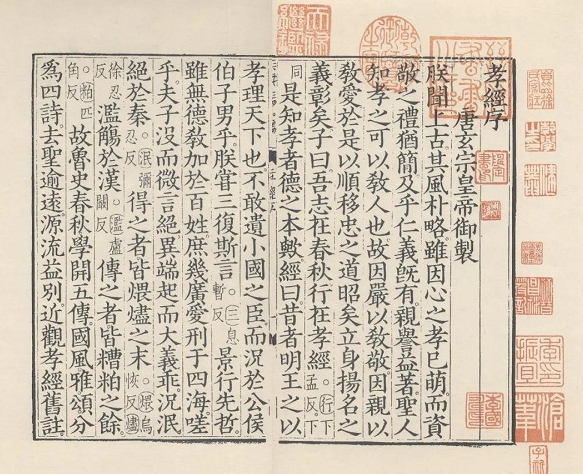 孝經序
唐玄宗皇帝御製
朕聞上古其風朴略雖因心之孝已萌而資
敬之禮猶簡及乎仁義旣有親譽益著聖人
知孝之可以敎人也故因嚴以敎敬因親以
敎愛於是以順移忠之道昭矣立身揚名之
義彰矣子曰吾志在春秋行在孝經行下孟反下
同是知孝者德之本歟經曰昔者明王之以
孝理天下也不敢遺小國之臣而況於公侯
伯子男乎朕嘗三復斯言三息暫反景行先哲
雖無德敎加於百姓庶幾廣愛刑于四海嗟
乎夫子沒而微言絕異端起而大義乖況泯
絕於秦泯彌忍反得之者皆煨燼之末煨烏恢反燼
徐忍反濫觴於漢濫盧闞反傳之者皆糟粕之餘
粕匹角反故魯史春秋學開五傳國風雅頌分
爲四詩去聖逾遠源流益別近觀孝經舊註
滄葦